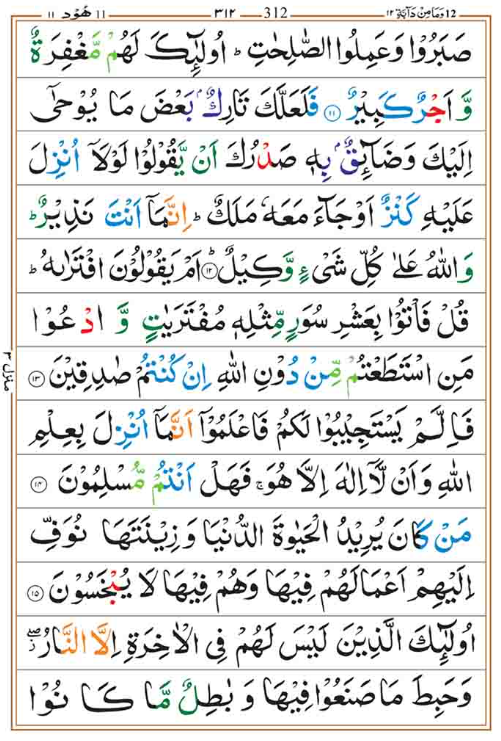 ١١ هُوْد ١١ ٣١٢ 312 وَمَا مِنْ دَآبَّةٍ ١٢ 12
صَبَرُوْا وَعَمِلُوا الصّٰلِحٰتِ ؕ اُولٰٓئِكَ لَهُمْ مَّغْفِرَةٌ
وَّ اَجْرٌ كَبِيْرٌ ۝۱۱ فَلَعَلَّكَ تَارِكٌۢ بَعْضَ مَا يُوْحٰٓى
اِلَيْكَ وَضَآئِقٌۢ بِهٖ صَدْرُكَ اَنْ يَّقُوْلُوْا لَوْلَاۤ اُنْزِلَ
عَلَيْهِ كَنْزٌ اَوْ جَآءَ مَعَهٗ مَلَكٌ ؕ اِنَّمَاۤ اَنْتَ نَذِيْرٌ ؕ
وَاللّٰهُ عَلٰى كُلِّ شَیْءٍ وَّكِيْلٌ ؕ۝۱۲ اَمْ يَقُوْلُوْنَ افْتَرٰىهُ ؕ
قُلْ فَاْتُوْا بِعَشْرِ سُوَرٍ مِّثْلِهٖ مُفْتَرَيٰتٍ وَّ ادْعُوْا
مَنِ اسْتَطَعْتُمْ مِّنْ دُوْنِ اللّٰهِ اِنْ كُنْتُمْ صٰدِقِيْنَ ۝۱۳
فَاِلَّمْ يَسْتَجِيْبُوْا لَكُمْ فَاعْلَمُوْۤا اَنَّمَاۤ اُنْزِلَ بِعِلْمِ
اللّٰهِ وَاَنْ لَّاۤ اِلٰهَ اِلَّا هُوَ ۚ فَهَلْ اَنْتُمْ مُّسْلِمُوْنَ ۝۱۴
مَنْ كَانَ يُرِيْدُ الْحَيٰوةَ الدُّنْيَا وَ زِيْنَتَهَا نُوَفِّ
اِلَيْهِمْ اَعْمَالَهُمْ فِيْهَا وَهُمْ فِيْهَا لَا يُبْخَسُوْنَ ۝۱۵
اُولٰٓئِكَ الَّذِيْنَ لَيْسَ لَهُمْ فِى الْاٰخِرَةِ اِلَّا النَّارُ ۖؗ
وَحَبِطَ مَا صَنَعُوْا فِيْهَا وَ بٰطِلٌ مَّا كَا نُوْا
منزل ۳